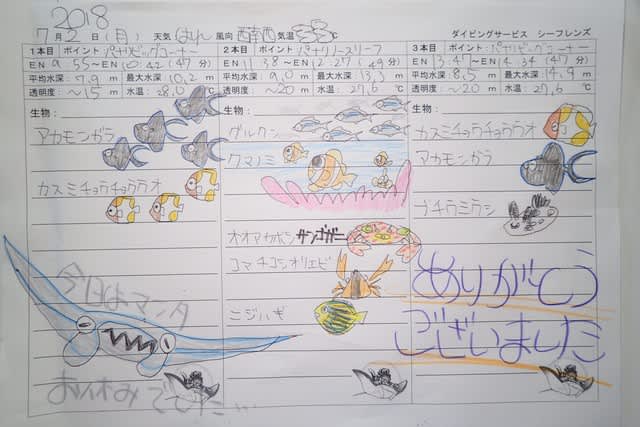 2018
7月2日(月) 天気 はれ 風向 西南西 気温 33℃ ダイビングサービス シーフレンズ
1本目 ポイント:パナリビッグコーナー
EN 9:55~EN 10:42 (47分)
平均水深: 7.9m 最大水深: 10.2m
透明度: ~15m 水温: 28.0℃
生物:
アカモンガラ
カスミチョウチョウウオ
今日はマンタ
お休みでした…
2本目 ポイント:パナリノースリーフ
EN 11:38~EN 12:27 (49分)
平均水深: 9.0m 最大水深: 13.3m
透明度: ~20m 水温: 27.6℃
生物:
グルクン
クマノミ
オオアカホシサンゴガニ
コマチコシオリエビ
ニジハギ
3本目 ポイント:パナリビッグコーナー
平均水深: 8.5m 最大水深: 14.9m
透明度: ~20m 水温: 27.6℃
生物:
カスミチョウチョウウオ
アカモンガラ
ブチウミウシ
ありがとう
ございました